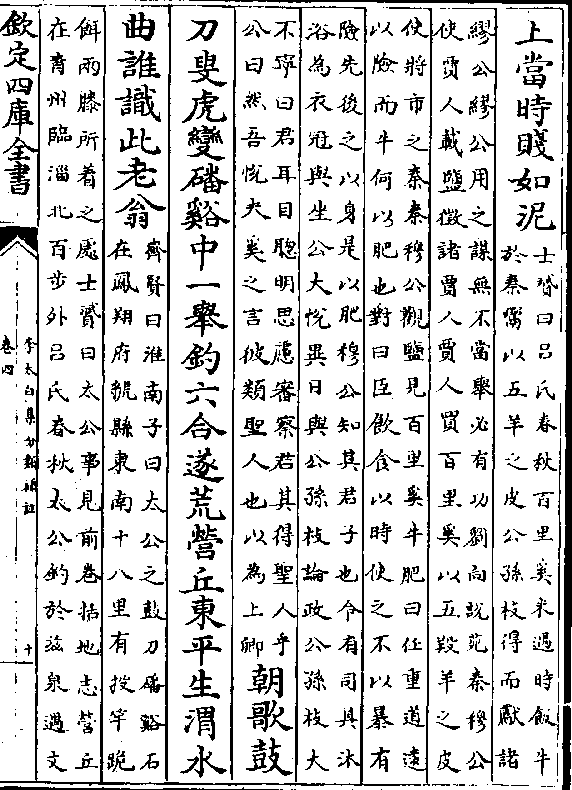 上當時賤如泥
士贇曰吕氏春秋百里奚未遇時飯牛
於秦鬻以五羊之皮公孫枝得而獻諸
繆公繆公用之謀無不當舉必有功劉向說苑秦穆公
使賈人載鹽徵諸賈人賈人買百里奚以五羖羊之皮
使將市之秦秦穆公觀鹽見百里奚牛肥曰任重道遠
以險而牛何以肥也對曰臣飲食以時使之不以暴有
險先後之以身是以肥穆公知其君子也令有司具沐
浴為衣冠與坐公大悅異日與公孫枝論政公孫枝大
不寧曰君耳目聰明思慮審察君其得聖人乎
公曰然吾悅夫奚之言彼類聖人也以為上卿
朝歌鼓
刀叟虎變磻谿中一舉釣六合遂荒營丘東平生渭水
曲誰識此老翁
齊賢曰淮南子曰太公之鼓刀磻谿石
在鳳翔府虢縣東南十八里有投竿跪
餌兩膝所着之處士贇曰太公事見前卷括地志營丘
在青州臨淄北百步外吕氏春秋太公釣於滋泉遇文
欽定四庫全書
李太白集分類補註
卷四
十